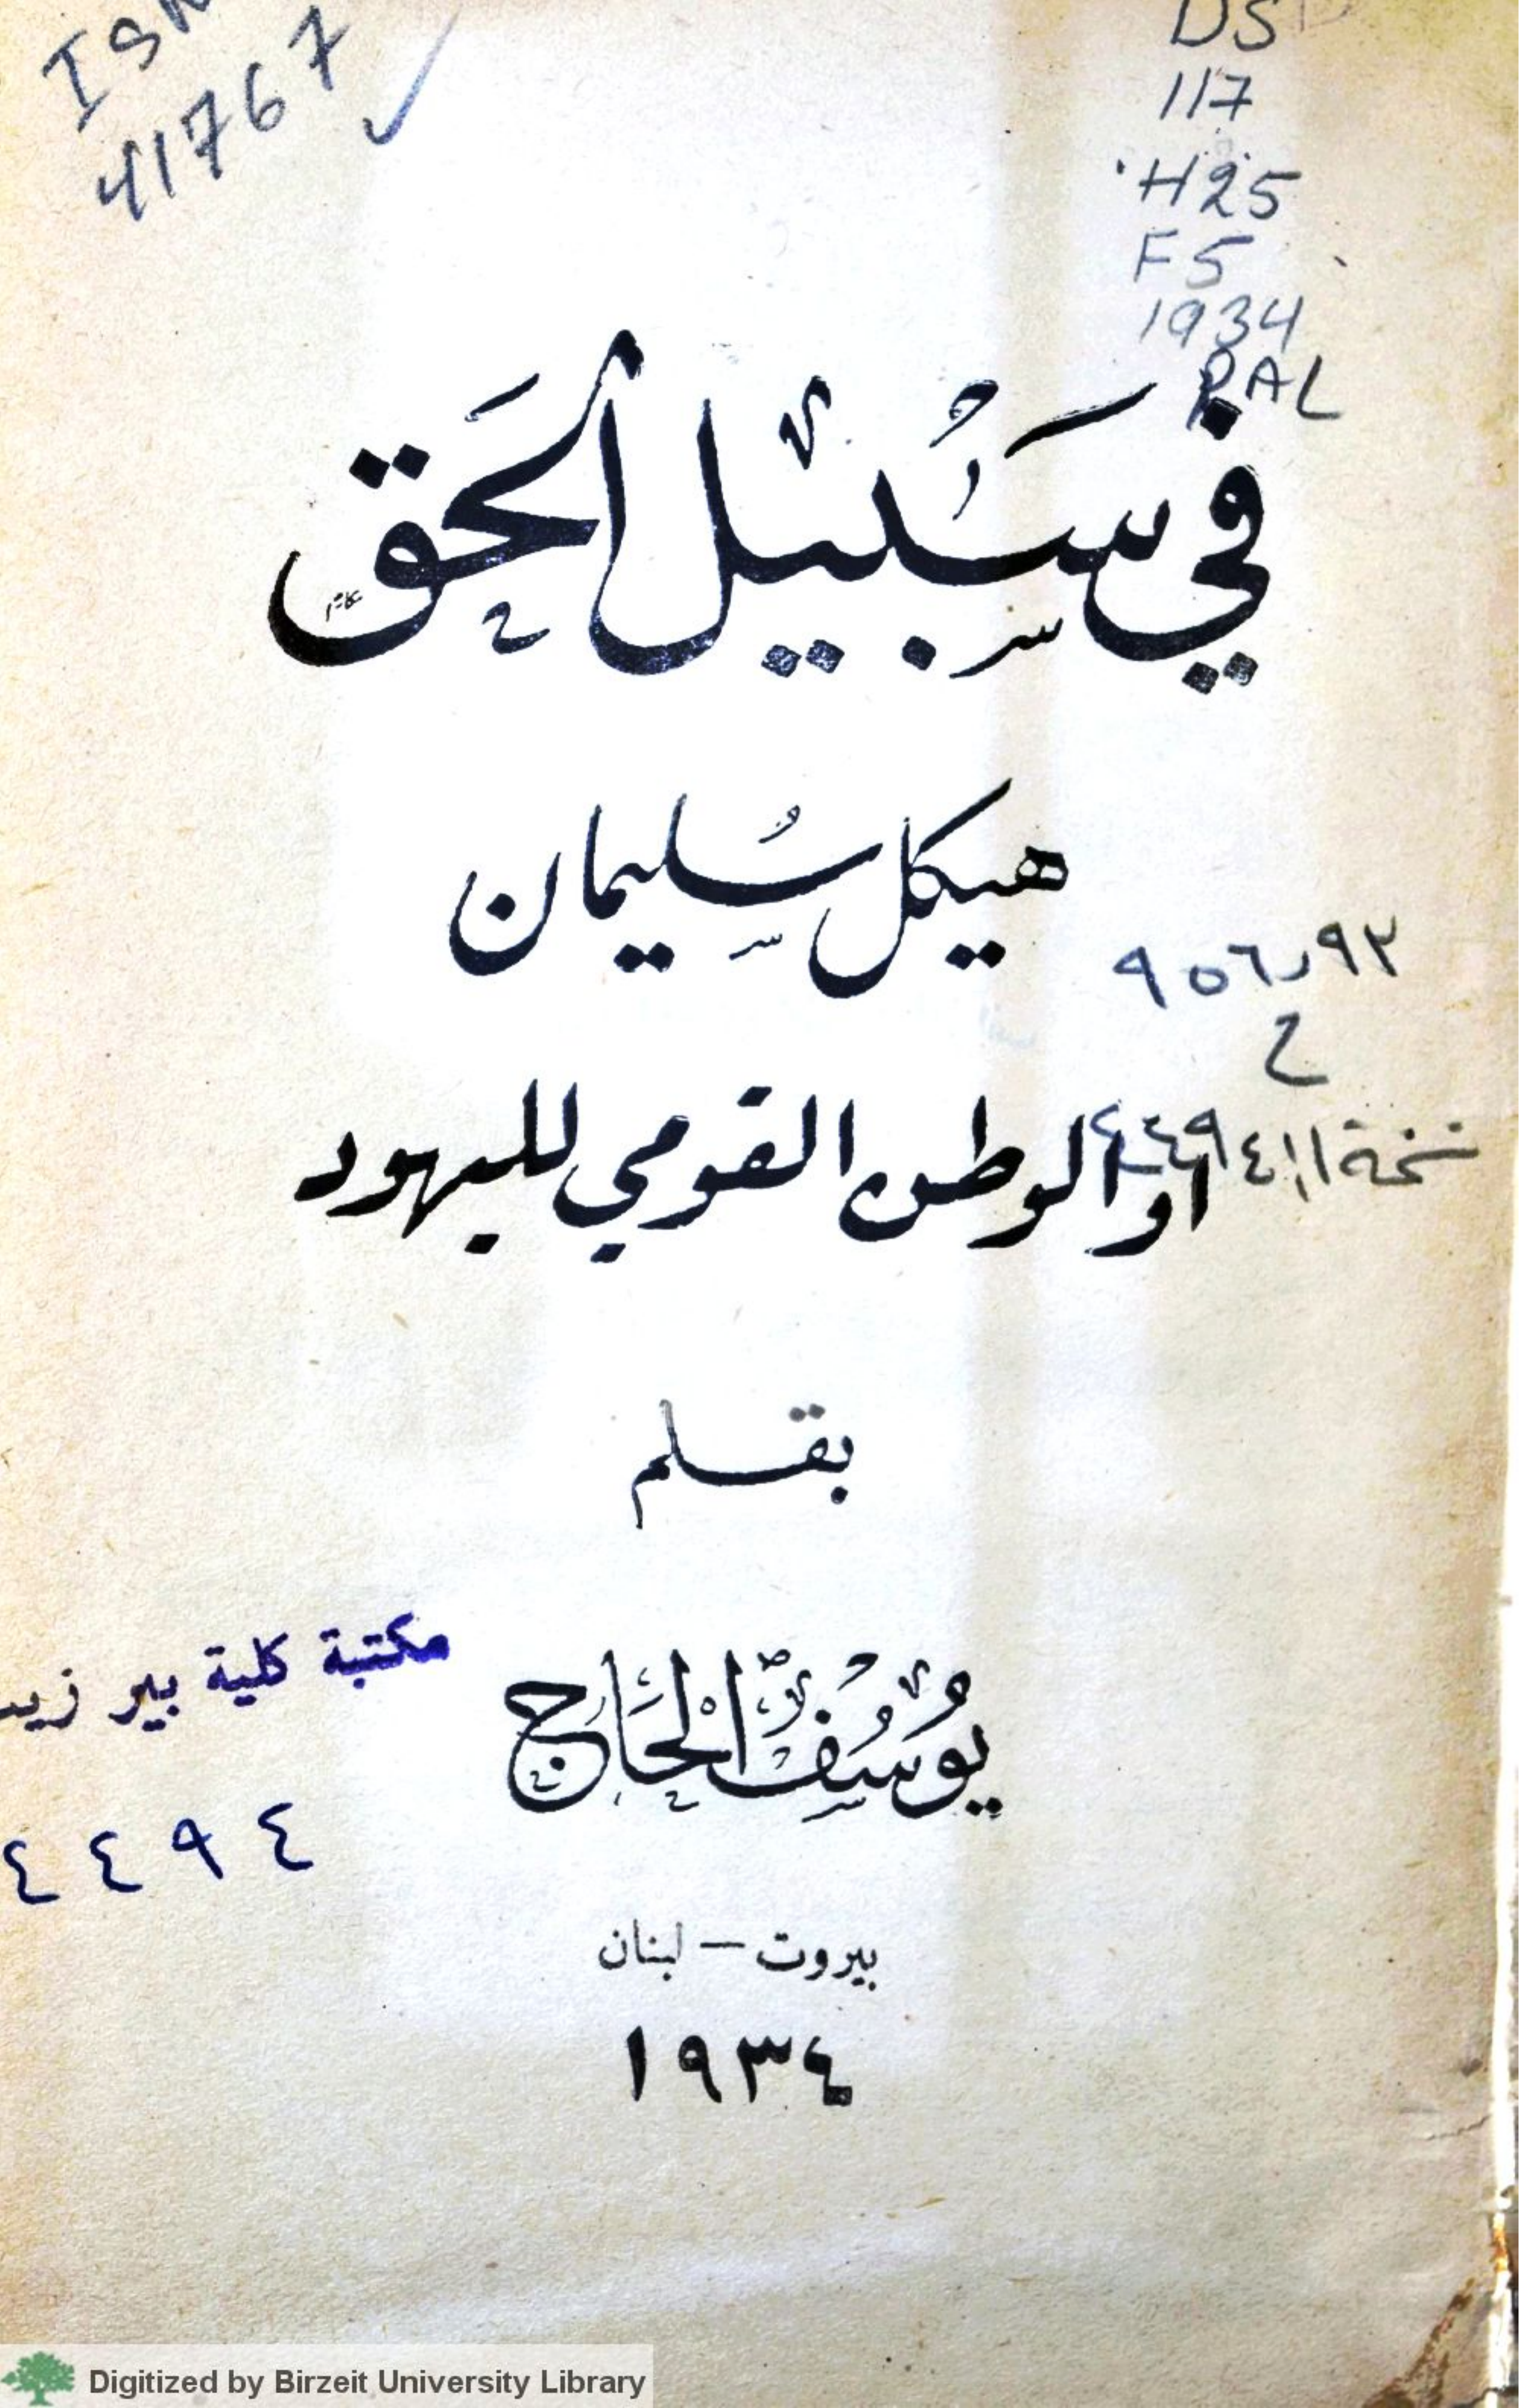 41767
DS
117
.H25
F5
1934
PAL
في سَبيْل الحَق
هيكل سُليمان
٩٥٦٫٩٢
ح
نسخة ١
او الوطن القومي لليهود
بقلم
مكتبة كلية بير زيت
يُوسُف الحَاج
٤٤٩٤
بيروت — لبنان
١٩٣٤
Digitized by Birzeit University Library